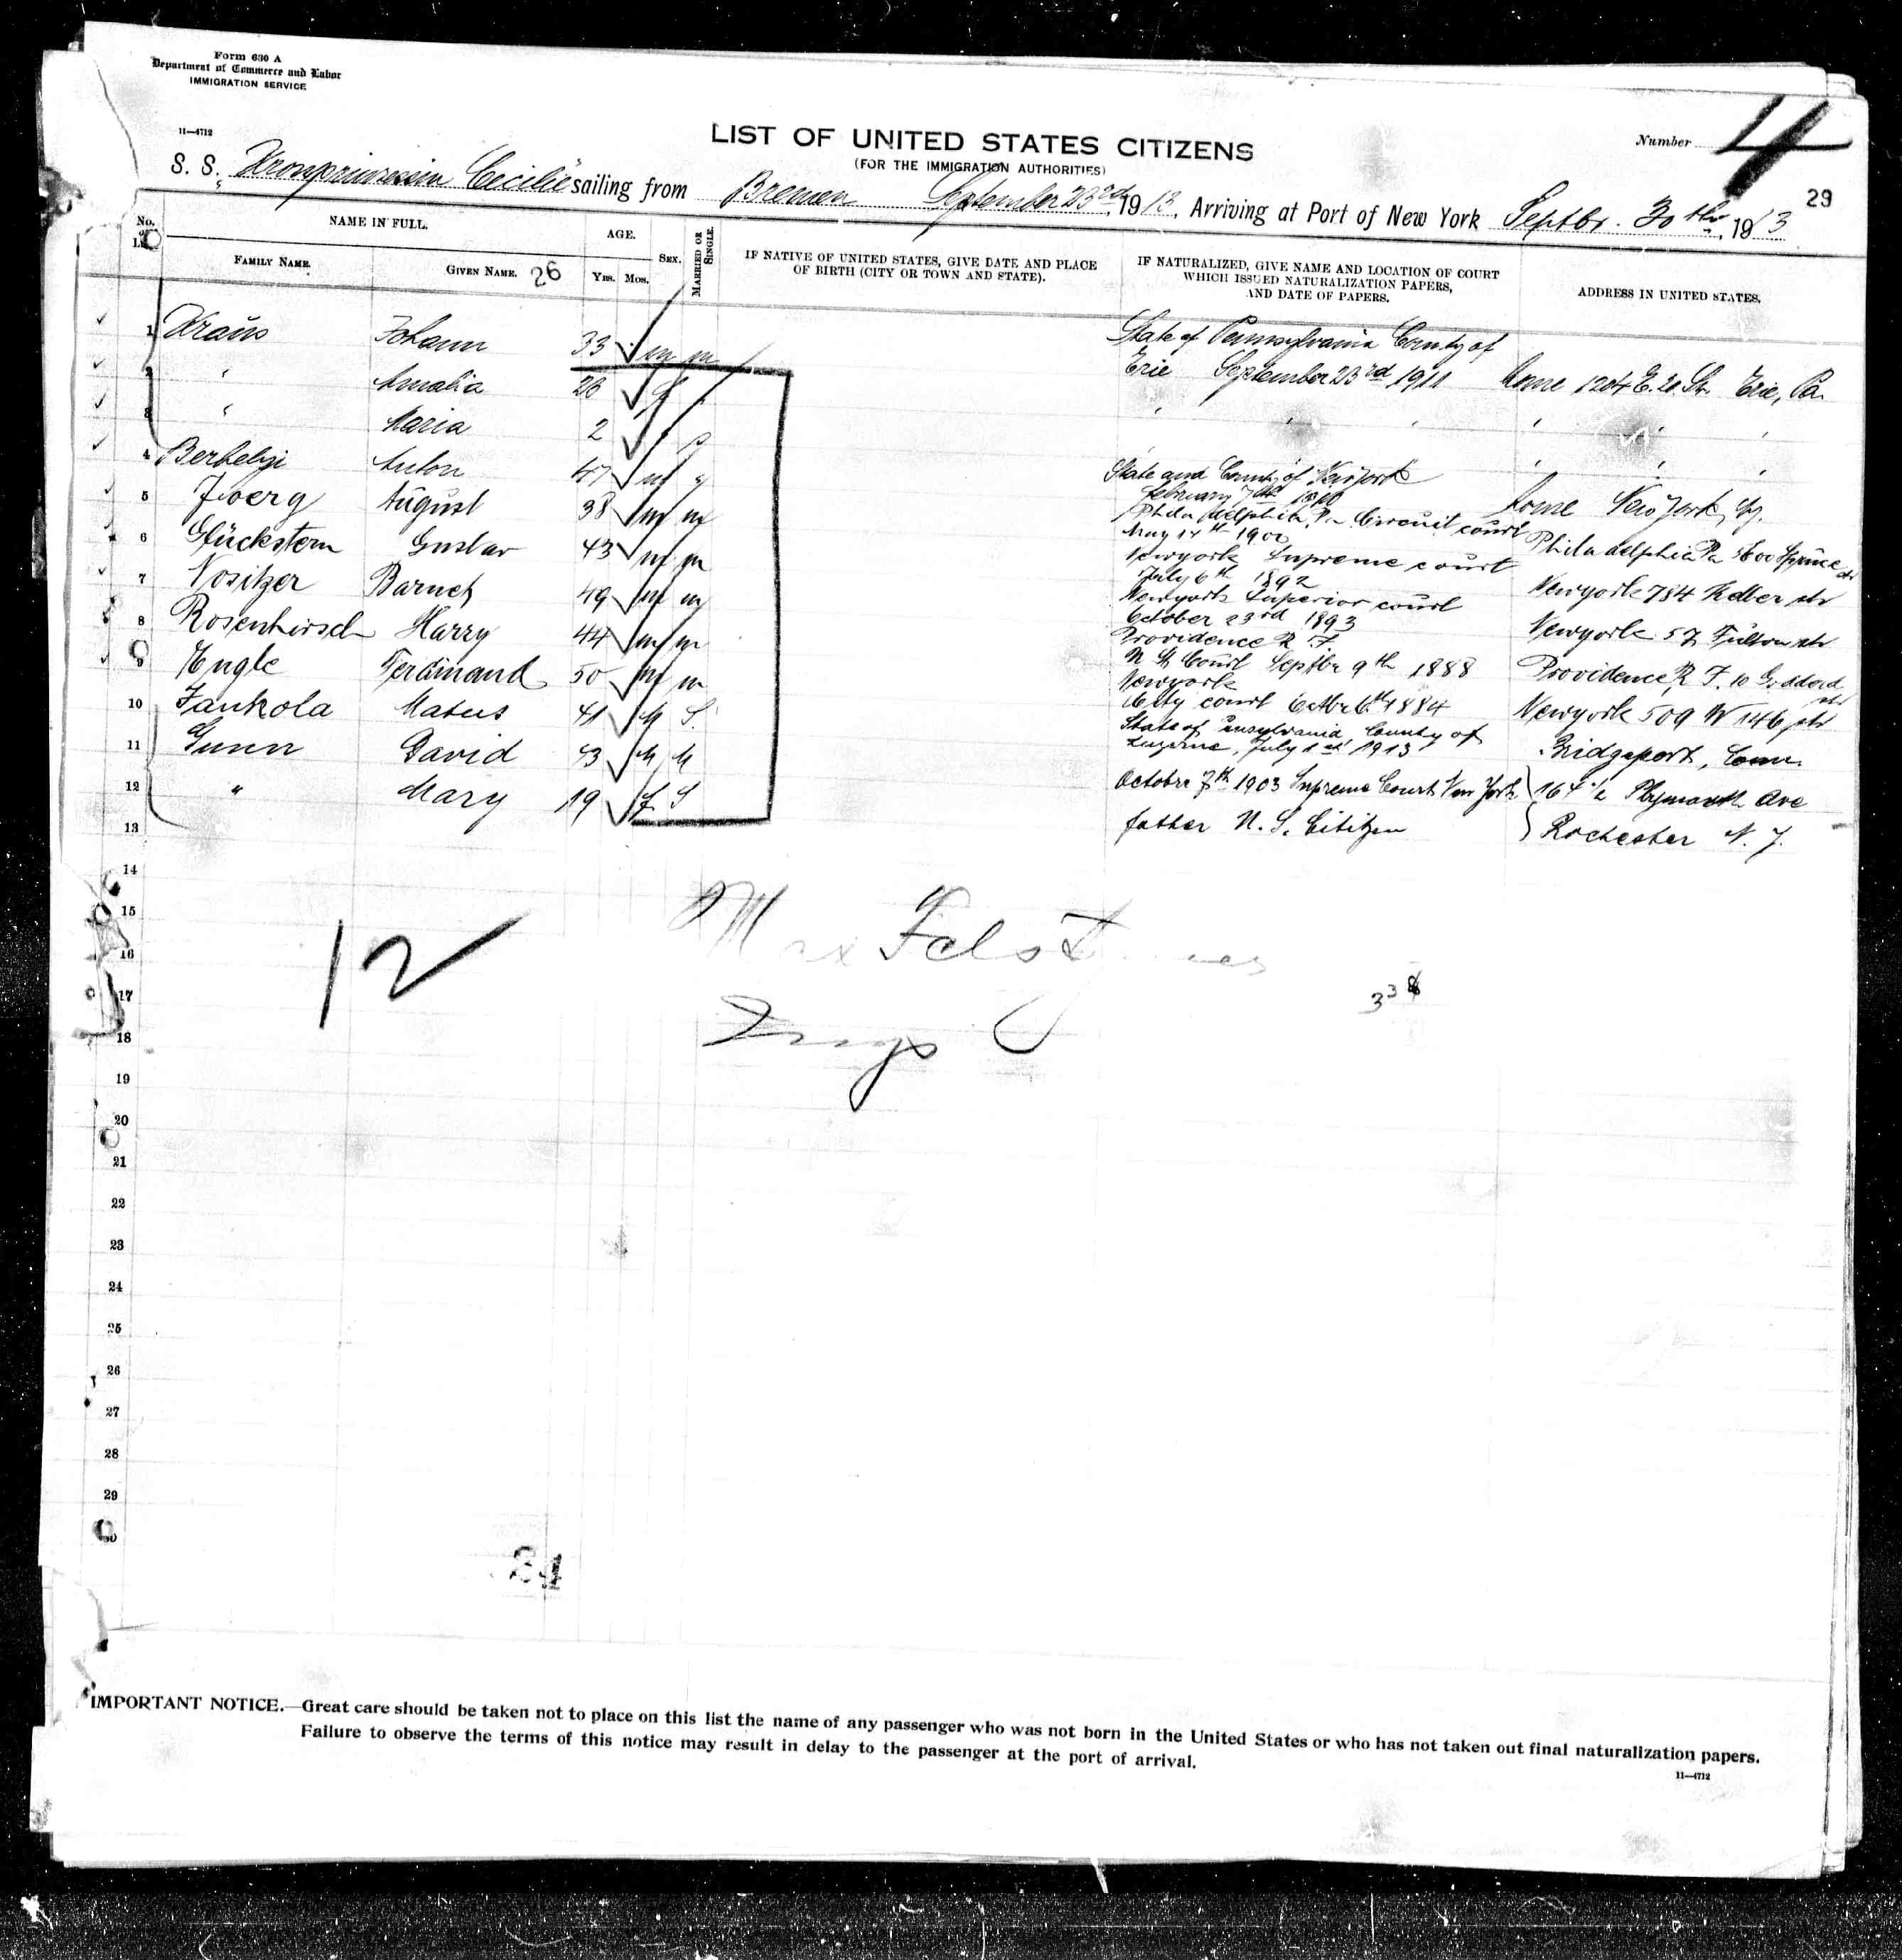 Form 630 A
Department of Commerce and Labor
IMMIGRATION SERVICE
11—4712
LIST OF UNITED STATES CITIZENS
(FOR THE IMMIGRATION AUTHORITIES)
Number 4
29
S. S. Kronprinzessin Cecilie sailing from Bremen September 23rd, 1913, Arriving at Port of New York Septbr. 30th, 1913
No. NAME IN FULL. AGE. SEX. MARRIED OR SINGLE. IF NATIVE OF UNITED STATES, GIVE DATE AND PLACE OF BIRTH (CITY OR TOWN AND STATE). IF NATURALIZED, GIVE NAME AND LOCATION OF COURT WHICH ISSUED NATURALIZATION PAPERS, AND DATE OF PAPERS. ADDRESS IN UNITED STATES.
FAMILY NAME. GIVEN NAME. 26 YRS. MOS.
1 Kraus Johann 33 m m State of Pennsylvania County of
Erie September 23rd 1911 home 1204 E. 20. Str. Erie, Pa.
2 " Amalia 26 f "
3 " Maria 2 " s
4 Berhelyi Anton 47 m State and County of New York
February 7th home New York, Ny.
5 Zwerg August 38 m m Philadelphia, Pa Circuit court
May 14th 1900 Philadelphia Pa Spruce str
6 Glückstern Gustav 43 m m Newyork Supreme court
July 6th 1892 Newyork 784 str
7 Nositzer Barnet 49 m m Newyork Superior court
October 23rd 1893 Newyork 57 Fulton str
8 Rosenhirsch Harry 44 m m Providence R. I.
Court Septbr 9th 1888 Providence R. I. 10 str
9 Engle Ferdinand 50 m m Newyork
City court 6th 1884 Newyork 509 W 146 str
10 Jankola Mateus 41 M S. State of Pensylvania, County of
Luzerne, July 1st 1913 Bridgeport, Conn.
11 Gunn David 43 M M Octobre 7th 1903 Supreme Court New York 164 1/2 Plymouth Ave
12 " Mary 19 f S father U. S. Citizen Rochester N. Y.
13
14
15
16
17
18
19
20
21
22
23
24
25
26
27
28
29
30
12
Max
Insp
338
34
IMPORTANT NOTICE.—Great care should be taken not to place on this list the name of any passenger who was not born in the United States or who has not taken out final naturalization papers.
Failure to observe the terms of this notice may result in delay to the passenger at the port of arrival.
11—4712